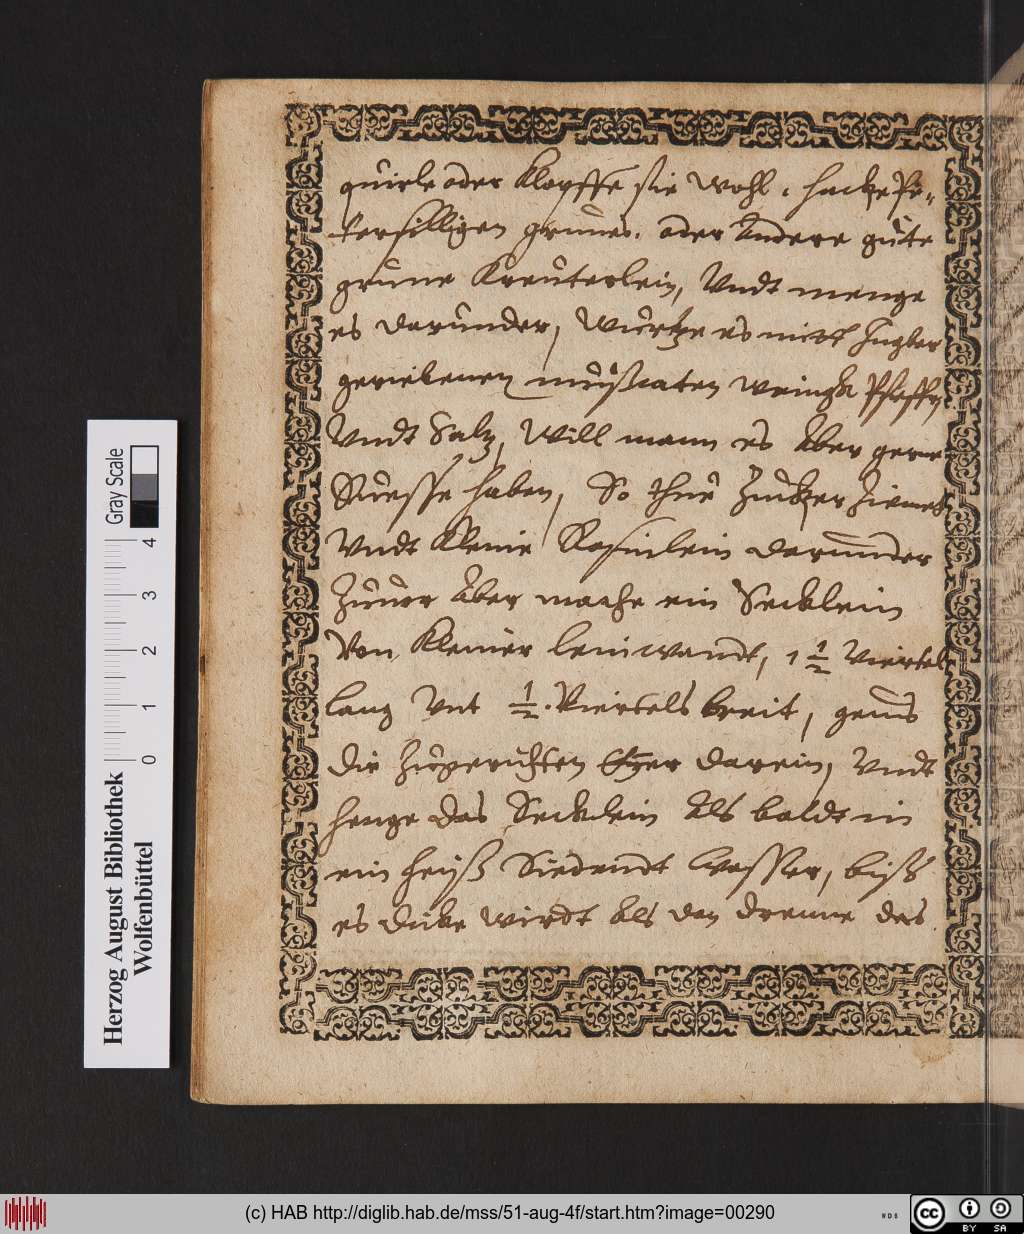 quirle oder klopffe sie wohl, hacke Pe-
tersilligen grunes, oder Andere gute
grune Kreuterlein, Vndt menge
es darunder, Wurtze es mitt Ingber
geriebenen mußcaten wenigk Pfeffer
Vndt Saltz, Will mann es Aber gerne
Suesse haben, So thue Zucker Zimet
Vndt Kleine Rosinlein darunder
Zuuor Aber mache ein Secklein
Von Kleiner leinwandt, 1 1/2 Viertel
lang Vnt 1/2. Viertels breit, geuß
die Zugerichten Eyer darein, Vndt
henge das Secklein Als baldt in
ein heiß Siedendt Wasser, biß
es dicke wirdt Als den drenne das
Gray Scale
0 1 2 3 4
Herzog August Bibliothek
Wolfenbüttel
(c) HAB http://diglib.hab.de/mss/51-aug-4f/start.htm?image=00290
WDB
cc BY SA